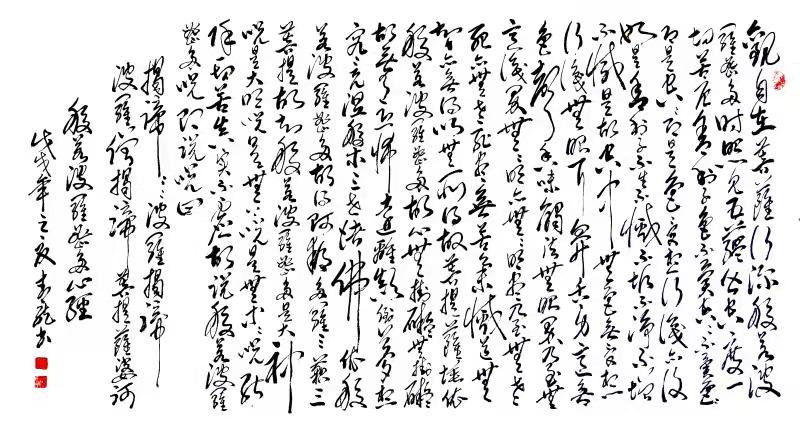 觀自在菩薩行深般若波
羅蜜多時照見五蘊皆空度一
切苦厄舍利子色不異空空不異色
即是空空即是色受想行識亦復
如是舍利子不生不滅不垢不淨不增
不減是故空中無色無受想
行識無眼耳鼻舌身意無
色聲香味觸法無眼界乃至無
意識界無無明亦無無明盡乃至無老
死亦無老死盡無苦集滅道無
智亦無得以無所得故菩提薩埵依
般若波羅蜜多故心無掛礙無掛礙
故無有恐怖遠離顛倒夢想
究竟涅槃三世諸佛依般
若波羅蜜多故得阿耨多羅三藐三
菩提故知般若波羅蜜多是大神
咒是大明咒是無上咒是無等等咒能
除一切苦真實不虛故說般若波羅
蜜多咒即說咒曰
揭諦揭諦波羅揭諦
波羅僧揭諦菩提薩婆訶
般若波羅蜜多心經
戊戌年之夏